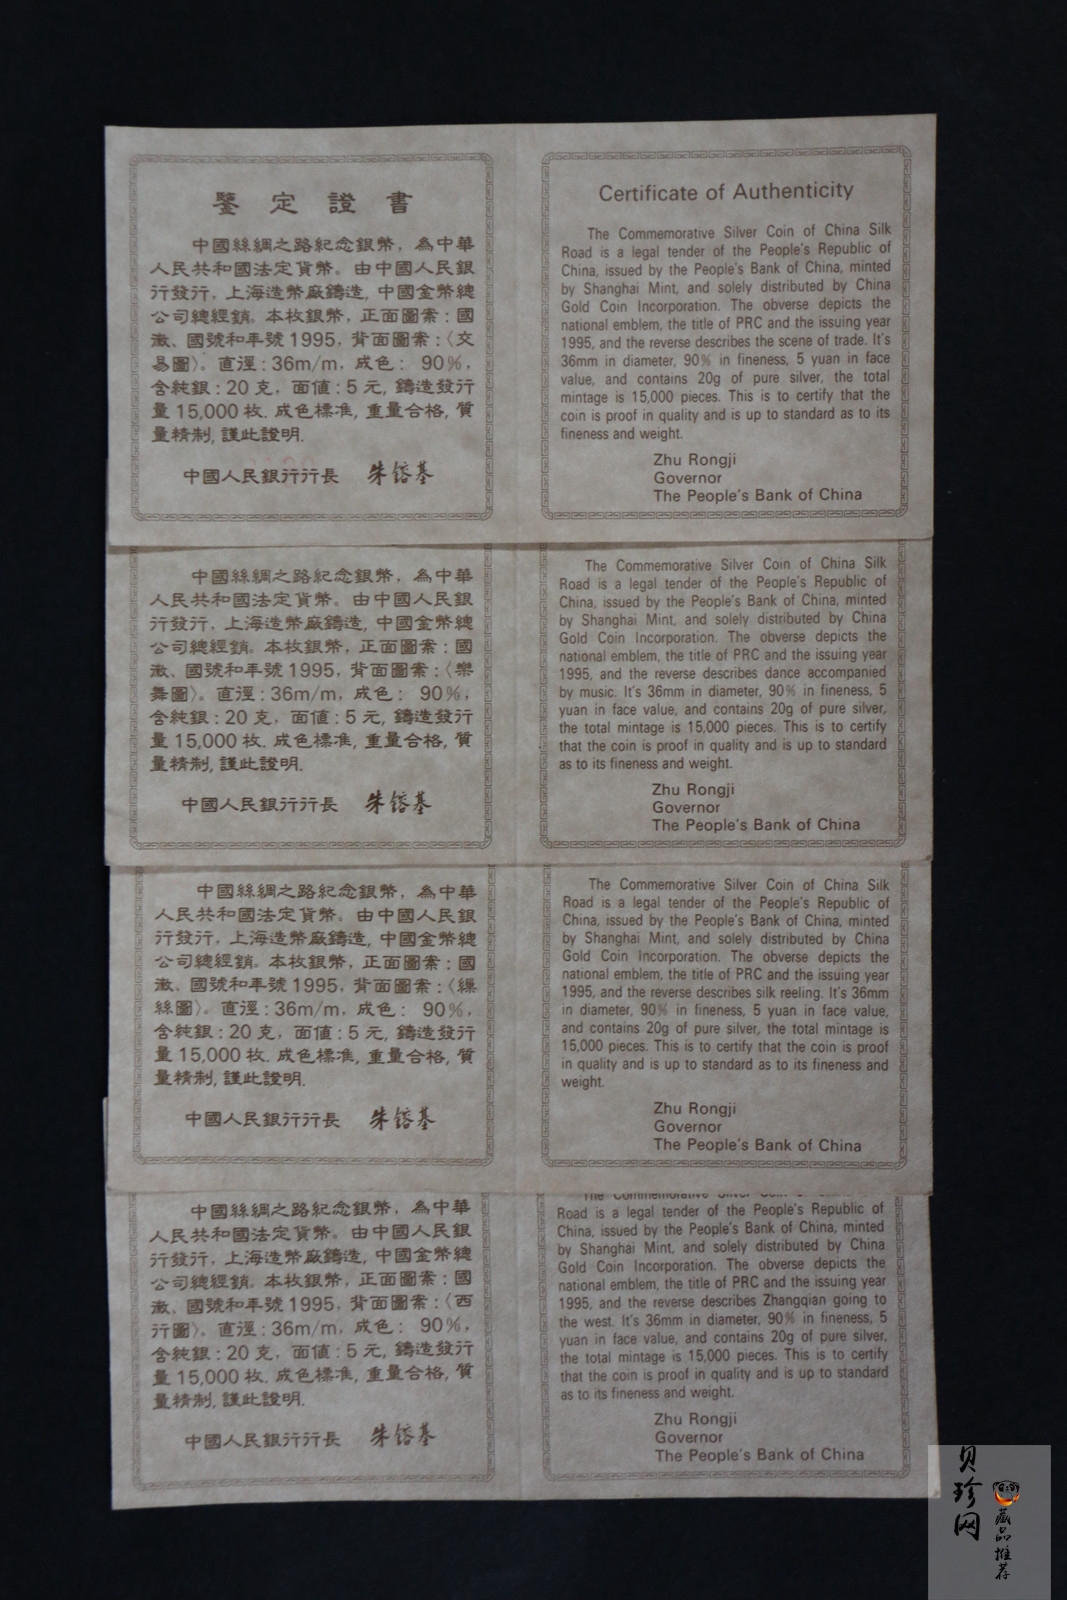 鑒定證書
中國絲綢之路紀念銀幣，為中華
人民共和國法定貨幣。由中國人民銀
行發行，上海造幣廠鑄造，中國金幣總
公司總經銷。本枚銀幣，正面圖案：國
徽、國號和年號1995，背面圖案：〈交
易圖〉。直徑：36m/m，成色： 90%，
含純銀：20克，面值：5元，鑄造發行
量15,000枚.成色標准，重量合格，質
量精制，謹此證明.
中國人民銀行行長 朱鎔基
Certificate of Authenticity
The Commemorative Silver Coin of China Silk
Road is a legal tender of the People's Republic of
China, issued by the People's Bank of China, minted
by Shanghai Mint, and solely distributed by China
Gold Coin Incorporation. The obverse depicts the
national emblem, the title of PRC and the issuing year
1995, and the reverse describes the scene of trade. It's
36mm in diameter, 90% in fineness, 5 yuan in face
value, and contains 20g of pure silver, the total
mintage is 15,000 pieces. This is to certify that the
coin is proof in quality and is up to standard as to its
fineness and weight.
Zhu Rongji
Governor
The People's Bank of China
中國絲綢之路紀念銀幣，為中華
人民共和國法定貨幣。由中國人民銀
行發行，上海造幣廠鑄造，中國金幣總
公司總經銷。本枚銀幣，正面圖案：國
徽、國號和年號1995，背面圖案：〈樂
舞圖〉。直徑：36m/m，成色： 90%，
含純銀：20克，面值：5元，鑄造發行
量15,000枚.成色標准，重量合格，質
量精制，謹此證明.
中國人民銀行行長 朱鎔基
The Commemorative Silver Coin of China Silk
Road is a legal tender of the People's Republic of
China, issued by the People's Bank of China, minted
by Shanghai Mint, and solely distributed by China
Gold Coin Incorporation. The obverse depicts the
national emblem, the title of PRC and the issuing year
1995, and the reverse describes dance accompanied
by music. It's 36mm in diameter, 90% in fineness, 5
yuan in face value, and contains 20g of pure silver,
the total mintage is 15,000 pieces. This is to certify
that the coin is proof in quality and is up to standard
as to its fineness and weight.
Zhu Rongji
Governor
The People's Bank of China
中國絲綢之路紀念銀幣，為中華
人民共和國法定貨幣。由中國人民銀
行發行，上海造幣廠鑄造，中國金幣總
公司總經銷。本枚銀幣，正面圖案：國
徽、國號和年號1995，背面圖案：〈繅
絲圖〉。直徑：36m/m，成色： 90%，
含純銀：20克，面值：5元，鑄造發行
量15,000枚.成色標准，重量合格，質
量精制，謹此證明.
中國人民銀行行長 朱鎔基
The Commemorative Silver Coin of China Silk
Road is a legal tender of the People's Republic of
China, issued by the People's Bank of China, minted
by Shanghai Mint, and solely distributed by China
Gold Coin Incorporation. The obverse depicts the
national emblem, the title of PRC and the issuing year
1995, and the reverse describes silk reeling. It's 36mm
in diameter, 90% in fineness, 5 yuan in face value,
and contains 20g of pure silver, the total mintage is
15,000 pieces. This is to certify that the coin is proof
in quality and is up to standard as to its fineness and
weight.
Zhu Rongji
Governor
The People's Bank of China
中國絲綢之路紀念銀幣，為中華
人民共和國法定貨幣。由中國人民銀
行發行，上海造幣廠鑄造，中國金幣總
公司總經銷。本枚銀幣，正面圖案：國
徽、國號和年號1995，背面圖案：〈西
行圖〉。直徑：36m/m，成色： 90%，
含純銀：20克，面值：5元，鑄造發行
量15,000枚.成色標准，重量合格，質
量精制，謹此證明.
中國人民銀行行長 朱鎔基
The Commemorative Silver Coin of
Road is a legal tender of the People's Republic of
China, issued by the People's Bank of China, minted
by Shanghai Mint, and solely distributed by China
Gold Coin Incorporation. The obverse depicts the
national emblem, the title of PRC and the issuing year
1995, and the reverse describes Zhangqian going to
the west. It's 36mm in diameter, 90% in fineness, 5
yuan in face value, and contains 20g of pure silver,
the total mintage is 15,000 pieces. This is to certify
that the coin is proof in quality and is up to standard
as to its fineness and weight.
Zhu Rongji
Governor
The People's Bank of China
贝珍网
藏品推荐